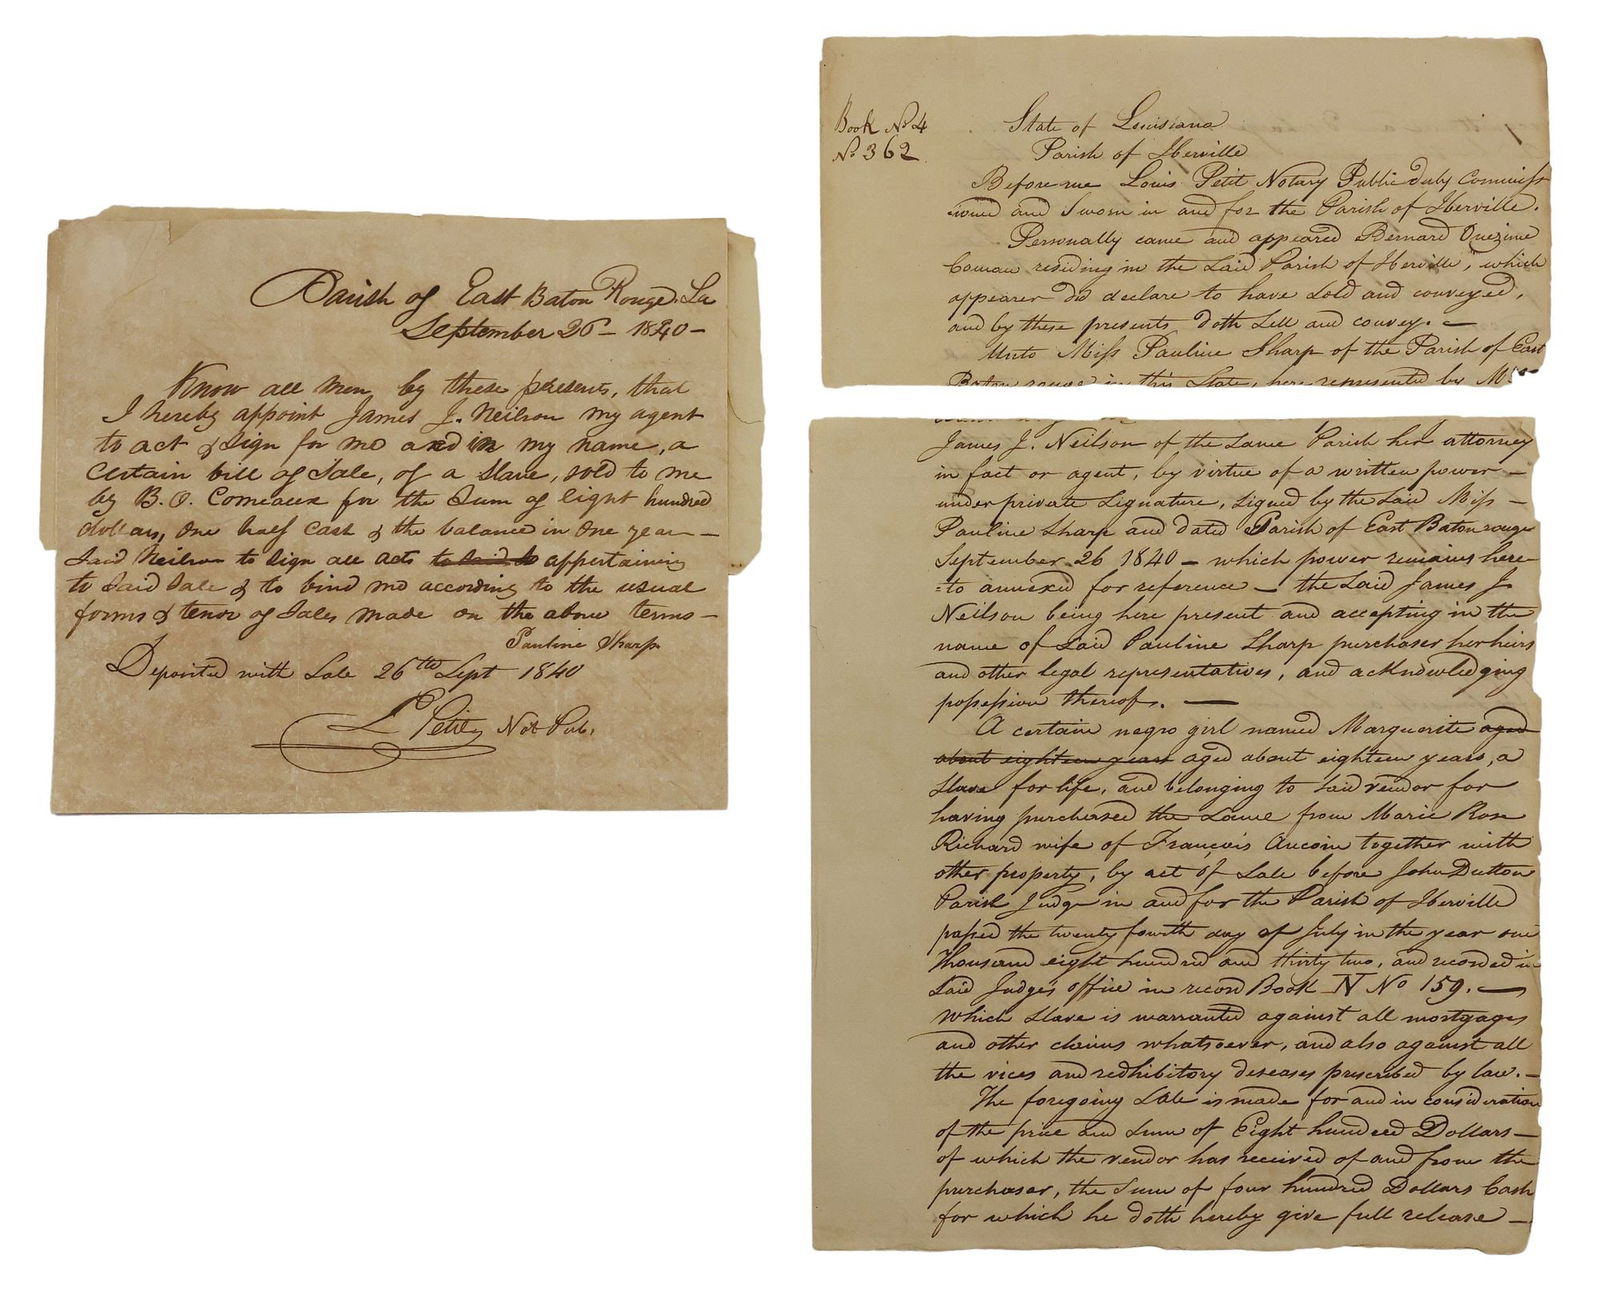 Parish of East Baton Rouge, La
September 26 - 1840 -
Know all men, by these presents, that
I hereby appoint James J. Neilson my agent
to act & sign for me and in my name, a
certain bill of Sale, of a slave, sold to me
by B. O. Comeaux for the Sum of eight hundred
dollars, one half cash & the balance in one year -
Said Neilson to sign all acts to said S appertaining
to Said Sale & to bind me according to the usual
forms & tenor of Sales made on the above terms -
Pauline Sharp
Deposited with Sale 26th Sept 1840
L Petit, Not. Pub.
Book No 4
No 362
State of Louisiana
Parish of Iberville
Before me Louis Petit Notary Public duly Commiss
ioned and Sworn in and for the Parish of Iberville.
Personally came and appeared Bernard Onezime
Comau residing in the Said Parish of Iberville, which
appearer did declare to have sold and conveyed,
and by these presents doth Sell and convey. -
Unto Miss Pauline Sharp of the Parish of East
Baton rouge in this State, here represented by Mr
James J. Neilson of the Same Parish her attorney
in fact or agent, by virtue of a written power -
under private Signature, Signed by the Said Miss -
Pauline Sharp and dated Parish of East Baton rouge
September 26 1840 - which power remains here
=to annexed for reference - the Said James J.
Neilson being here present and accepting in the
name of Said Pauline Sharp purchaser her heirs
and other legal representatives, and acknowledging
possession thereof. -
A certain negro girl named Marguerite aged
about eighteen years aged about eighteen years, a
Slave for life, and belonging to Said vendor for
having purchased the Same from Marie Rose
Richard wife of François Aucoin together with
other property, by act of Sale before John Dutton
Parish Judge in and for the Parish of Iberville
passed the twenty fourth day of July in the year one
Thousand eight hundred and thirty two, and recorded in
Said Judges office in record Book N No 159. -
Which Slave is warranted against all mortgages
and other claims whatsoever, and also against all
the vices and redhibitory diseases prescribed by law. -
The foregoing Sale is made for and in consideration
of the price and Sum of Eight hundred Dollars -
of which the vendor has received of and from the
purchaser, the Sum of four hundred Dollars Cash
for which he doth hereby give full release -